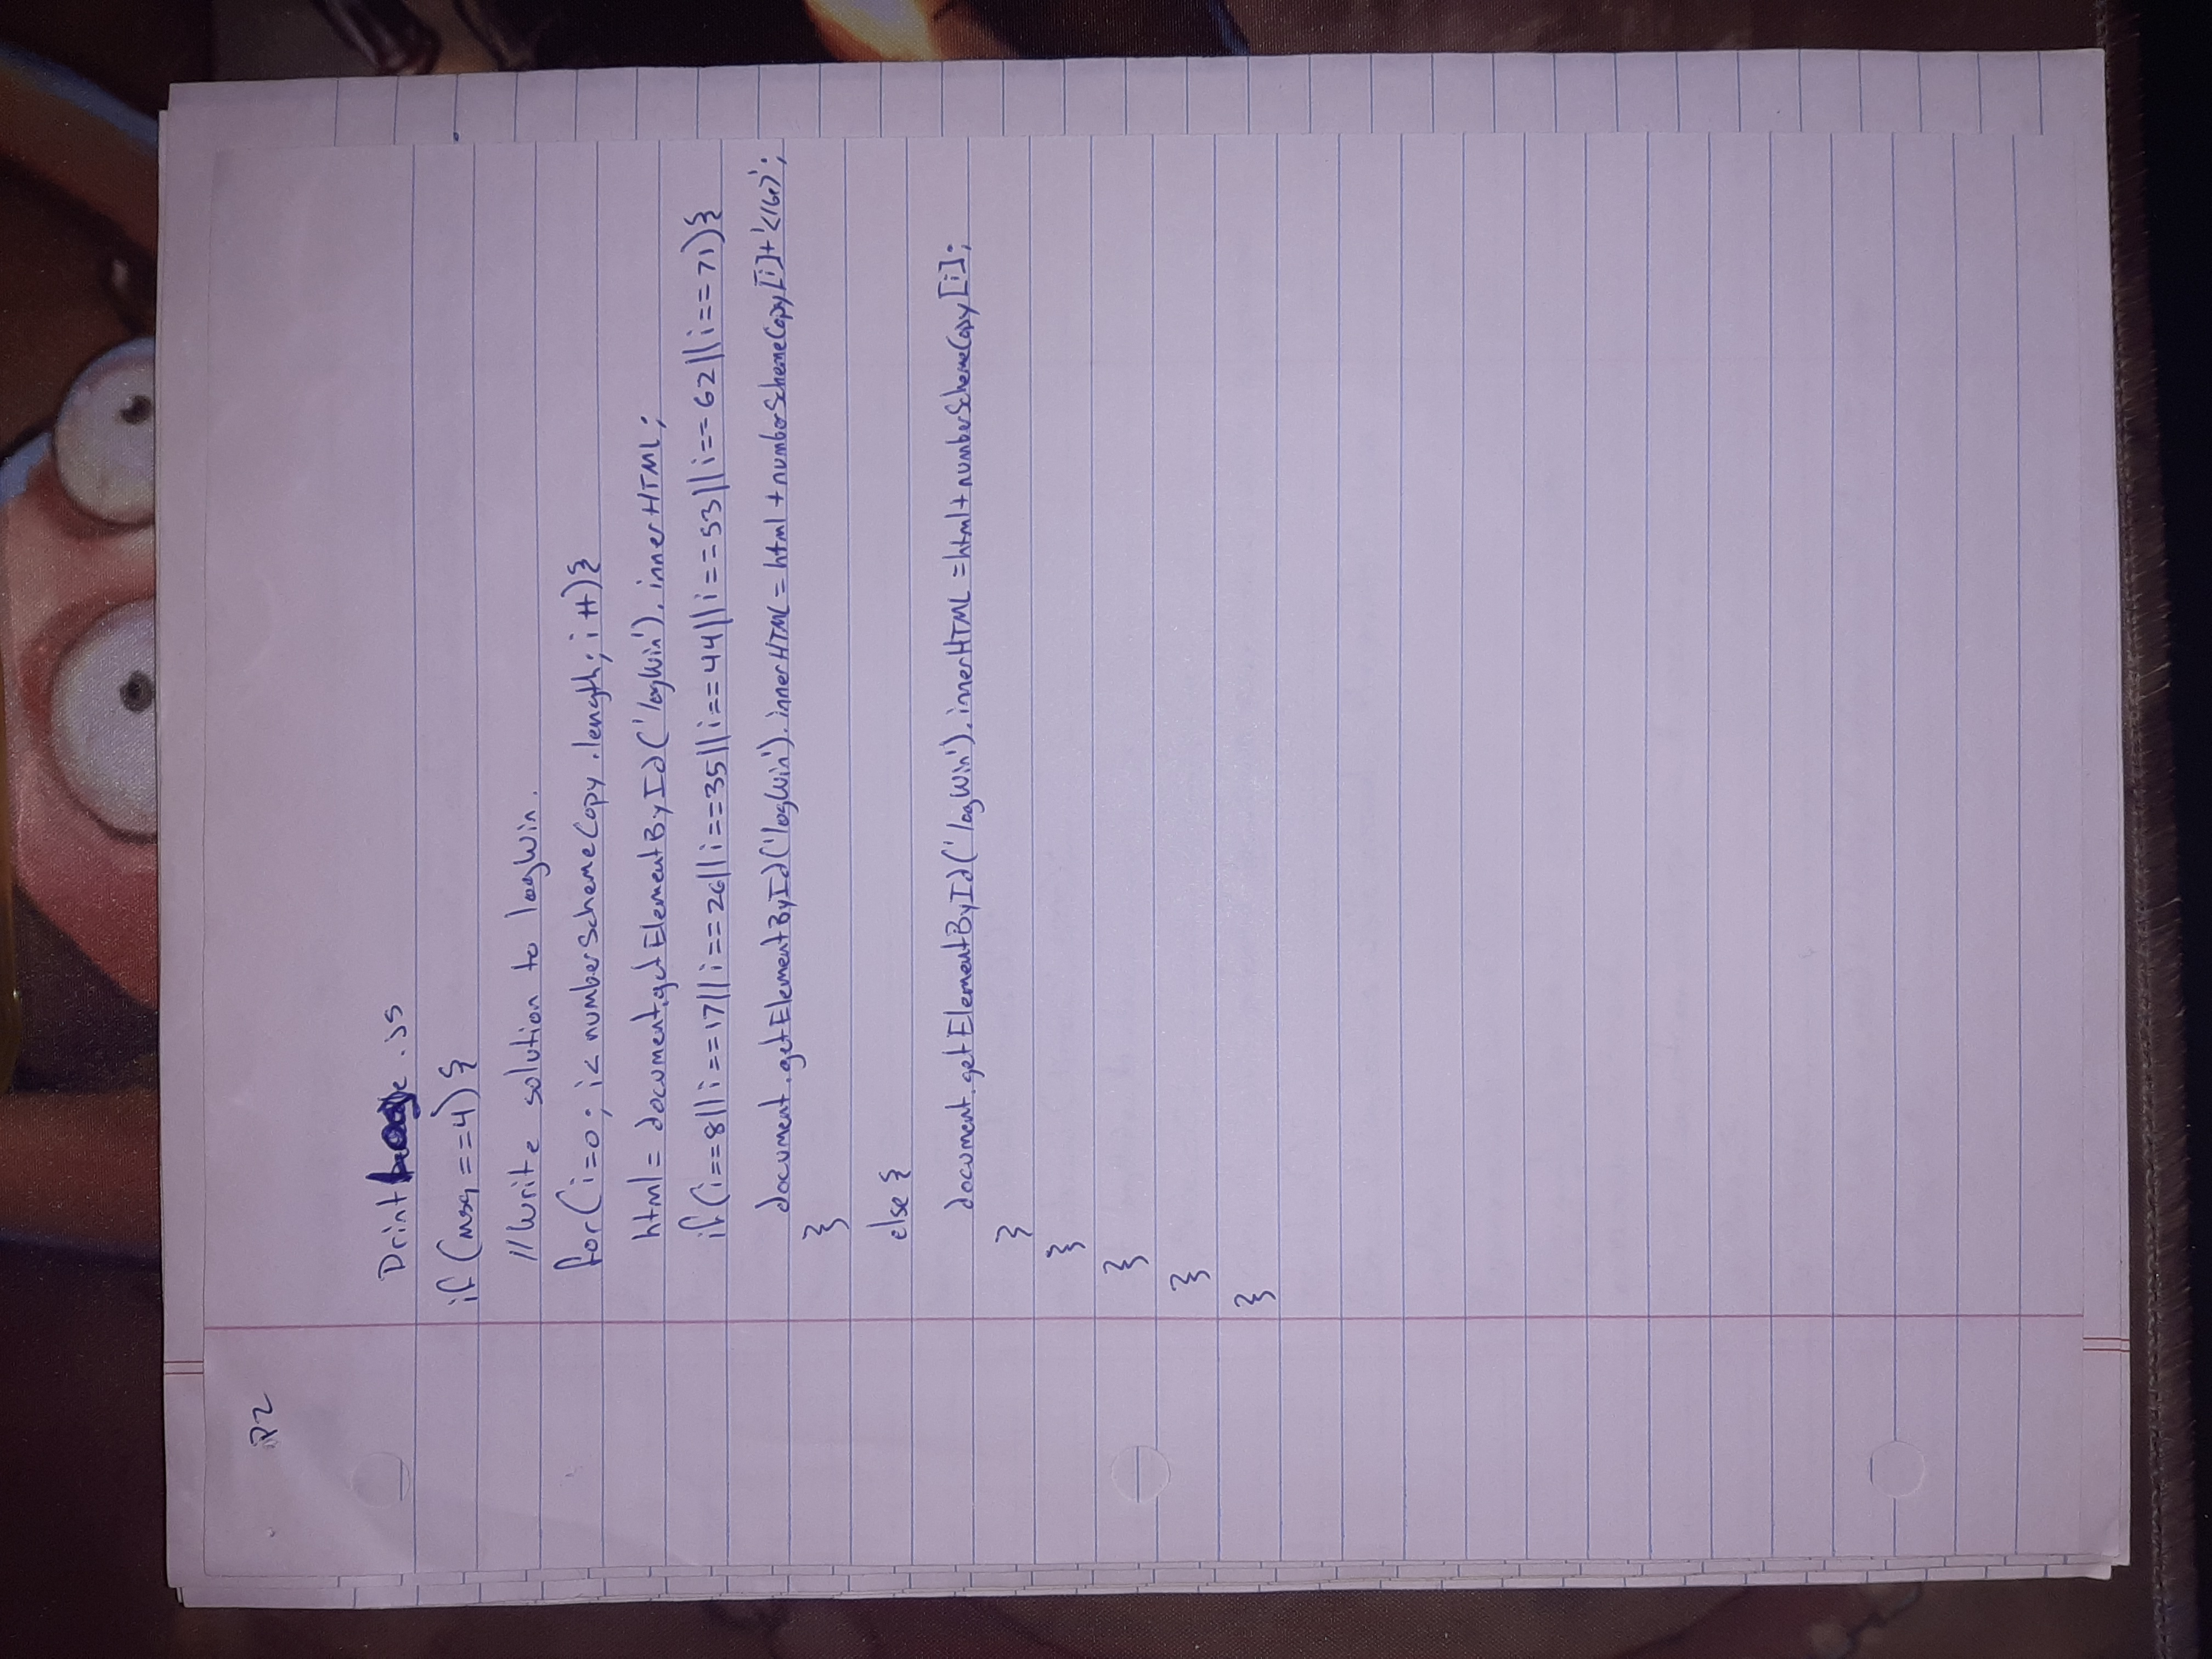 P2
Print Log .js
if (msg ==4) {
//Write solution to logWin.
for(i=0; i< numberSchemeCopy.length; i++){
html= document.getElementById('logWin').innerHTML;
if(i==8||i==17||i==26||i==35||i==44||i==53||i==62||i==71){
document.getElementById('logWin').innerHTML = html + numberSchemeCopy[i]+'</br>';
}
else {
document.getElementById('logWin').innerHTML =html+numberSchemeCopy[i];
}
}
}
}
}